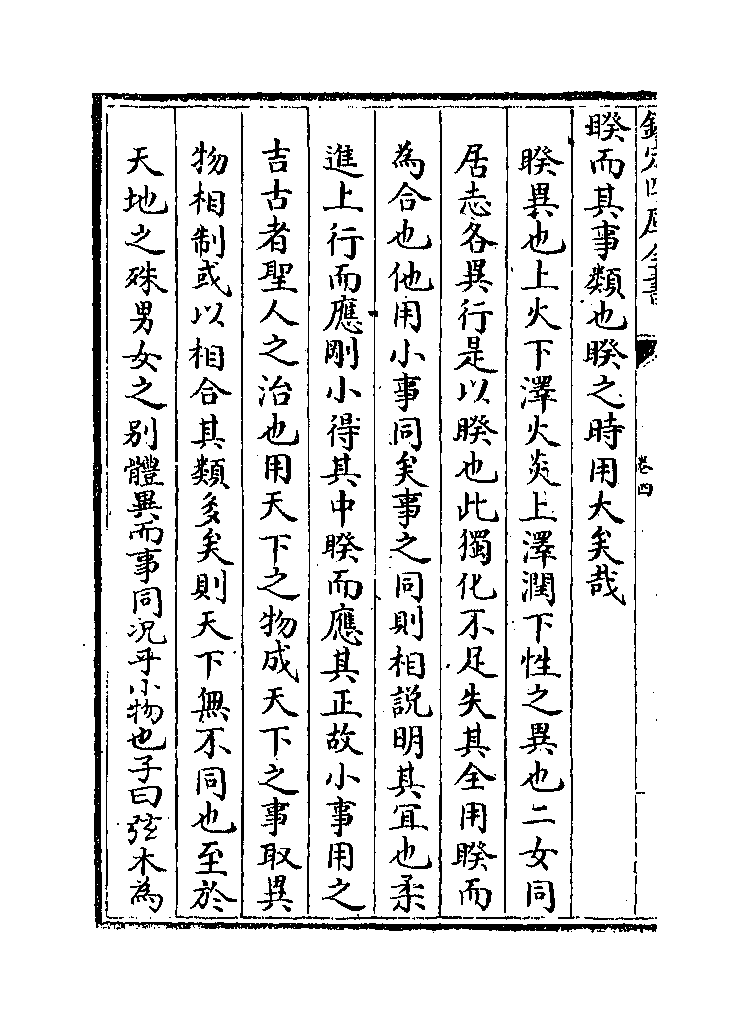 欽定四庫全書
卷四
睽而其事類也睽之時用大矣哉
睽異也上火下澤火炎上澤潤下性之異也二女同
居志各異行是以睽也此獨化不足失其全用睽而
為合也他用小事同矣事之同則相説明其宜也柔
進上行而應剛小得其中睽而應其正故小事用之
吉古者聖人之治也用天下之物成天下之事取異
物相制或以相合其類多矣則天下無不同也至於
天地之殊男女之别體異而事同况乎小物也子曰弦木為